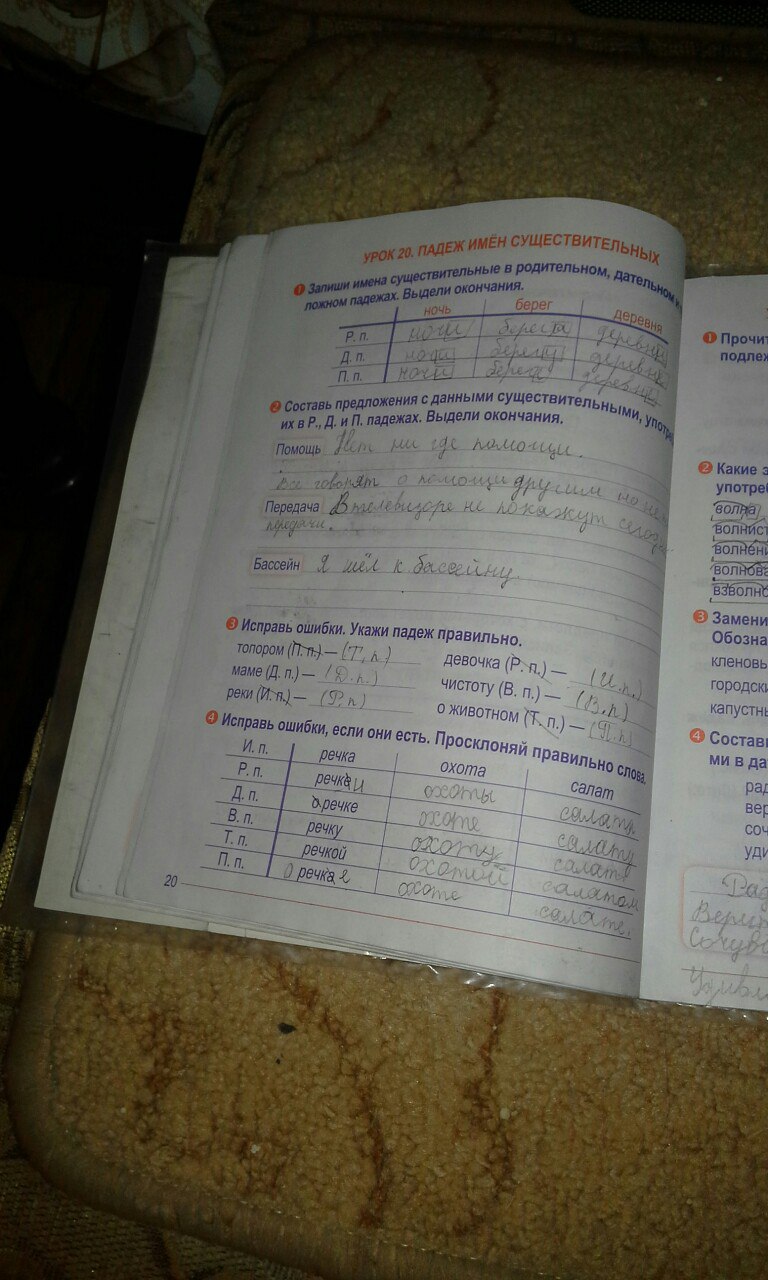 УРОК 20. ПАДЕЖ ИМЁН СУЩЕСТВИТЕЛЬНЫХ
1 Запиши имена существительные в родительном, дательном и
ложном падежах. Выдели окончания.
ночь берег деревня
Р. п. ночи берега деревни
Д. п. ночи берегу
П. п. ночи береге
2 Составь предложения с данными существительными, употре
их в Р., Д. и П. падежах. Выдели окончания.
Помощь Нет ни где помощи.
Все говорят о помощи другим но не
Передача В телевизоре не покажут сегод
передачи.
Бассейн Я шёл к бассейну.
3 Исправь ошибки. Укажи падеж правильно.
топором (П. п.) — (Т. п) девочка (Р. п.) — (И.п.)
маме (Д. п.) — (Д.п.) чистоту (В. п.) — (В.п)
реки (И. п.) — (Р.п) о животном (Т. п.) — (П.п)
4 Исправь ошибки, если они есть. Просклоняй правильно слова.
И. п. речка охота салат
Р. п. речки охоты
Д. п. речке охоте салату
В. п. речку охоту салат
Т. п. речкой охотой салатом
П. п. О речке охоте салате.
20
1 Прочит
подлеж
2 Какие з
употреб
волна
волнист
волнени
волнова
взволно
3 Замени
Обозна
кленовы
городски
капустны
4 Составь
ми в да
рад
вер
соч
уди
Рад
Верит
Сочув
Удивл